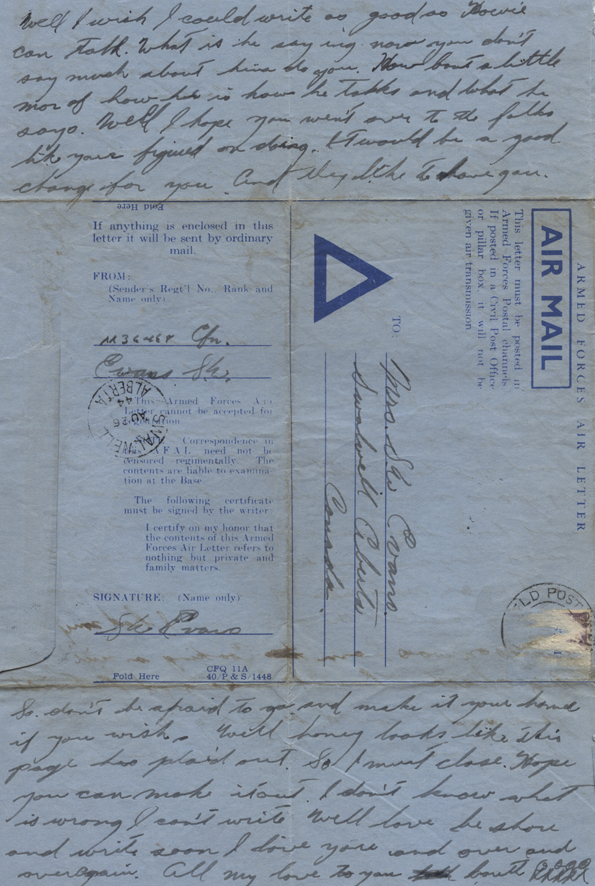 Well I wish I could write as good as Howie
can talk. What is he saying now you don't
say much about him to you. How bout a little
mor of how he is how he talks and what he
says. Well I hope you went over to the folks
lik your figured on doing. It would be a good
change for you. And they'd like to have you.
Fold Here
If anything is enclosed in this
letter it will be sent by ordinary
mail.
FROM:
(Sender's Regt'l No., Rank and
Name only)
Cfn.
Evans
This Armed Forces Air
Letter cannot be accepted for
Correspondence in
A.F.A.L. need not be
censored regimentally. The
contents are liable to examina-
tion at the Base.
The following certificate
must be signed by the writer:
I certify on my honor that
the contents of this Armed
Forces Air Letter refers to
nothing but private and
family matters.
SIGNATURE: (Name only)
Evans
Fold Here
CFQ 11A
40/P. & S/1448
SWALWELL
AU 26
44
ALBERTA
ARMED FORCES AIR LETTER
AIR MAIL
This letter must be posted in
Armed Forces Postal channels.
If posted in a Civil Post Office
or pillar box it will not be
given air transmission
TO:
Mrs. Evans.
Swalwell Alberta
Canada.
LD POST
So don't be afraid to go and make it your home
if you wish. Well honey looks like this
page has plaid out. So I must close. Hope
you can make it out. I don't know what
is wrong I can't write. Well love be shore
and write soon I love you and over and
overagain. All my love to you bouth